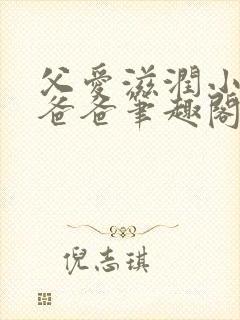 父愛滋潤小
爸爸筆趣閣
倪志琪